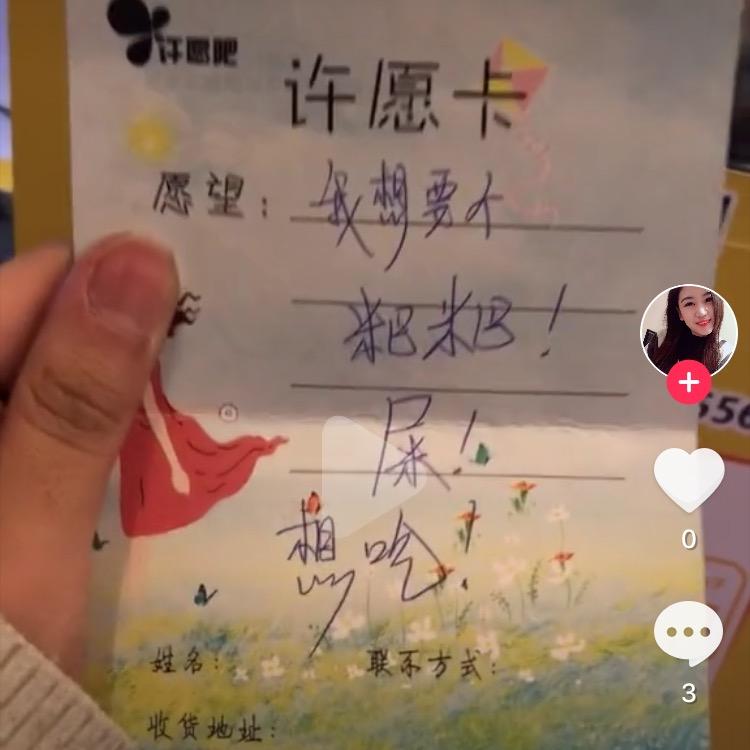 许愿吧
许愿卡
愿望: 我想要个
粑粑!
屎!
想吃!
姓名:
联系方式:
收货地址:
556
0
3